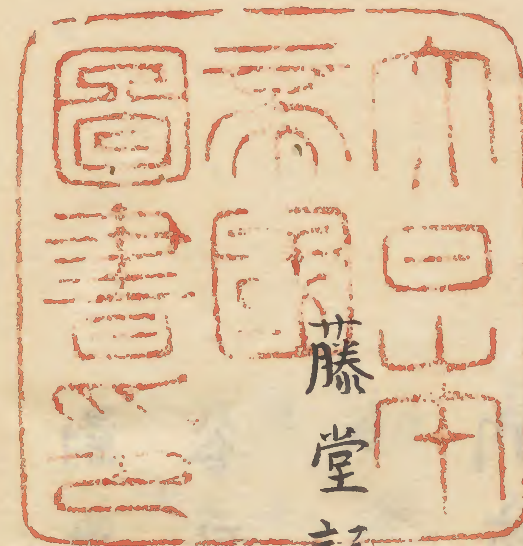 大日本
帝國
圖書印
藤堂